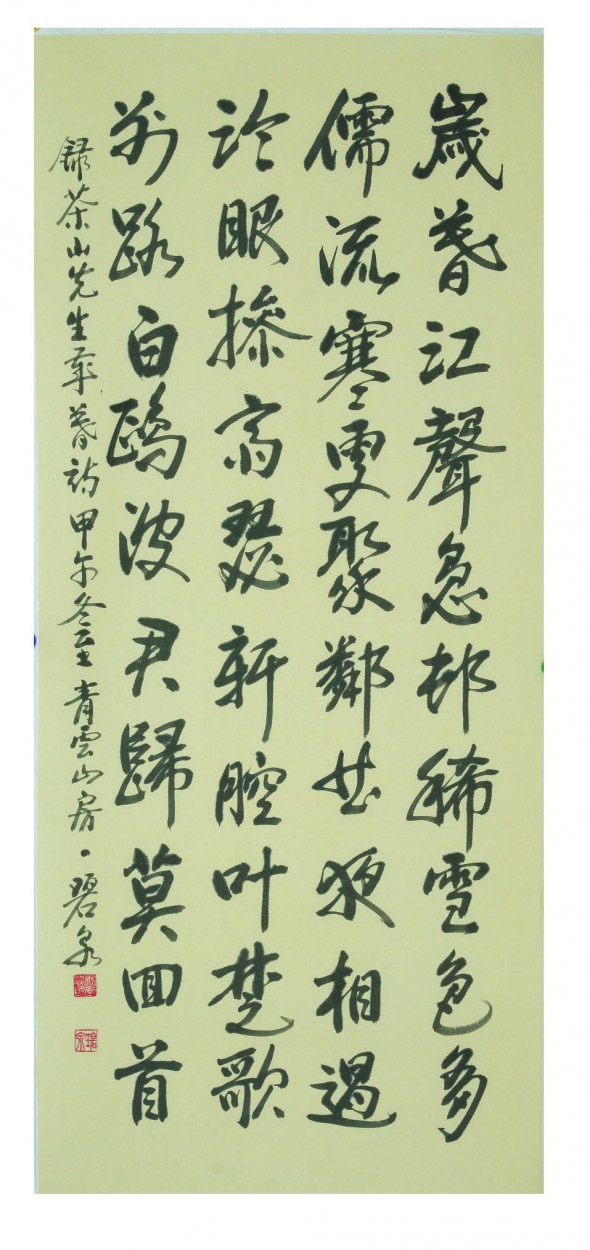 歲暮江聲急邨稀雪色多
儒流寒更聚鄰曲夜相過
冷眼操齊瑟新腔叶楚歌
前路白鷗波君歸莫回首
錄茶山先生歲暮詩甲午冬至青雲山房碧泉